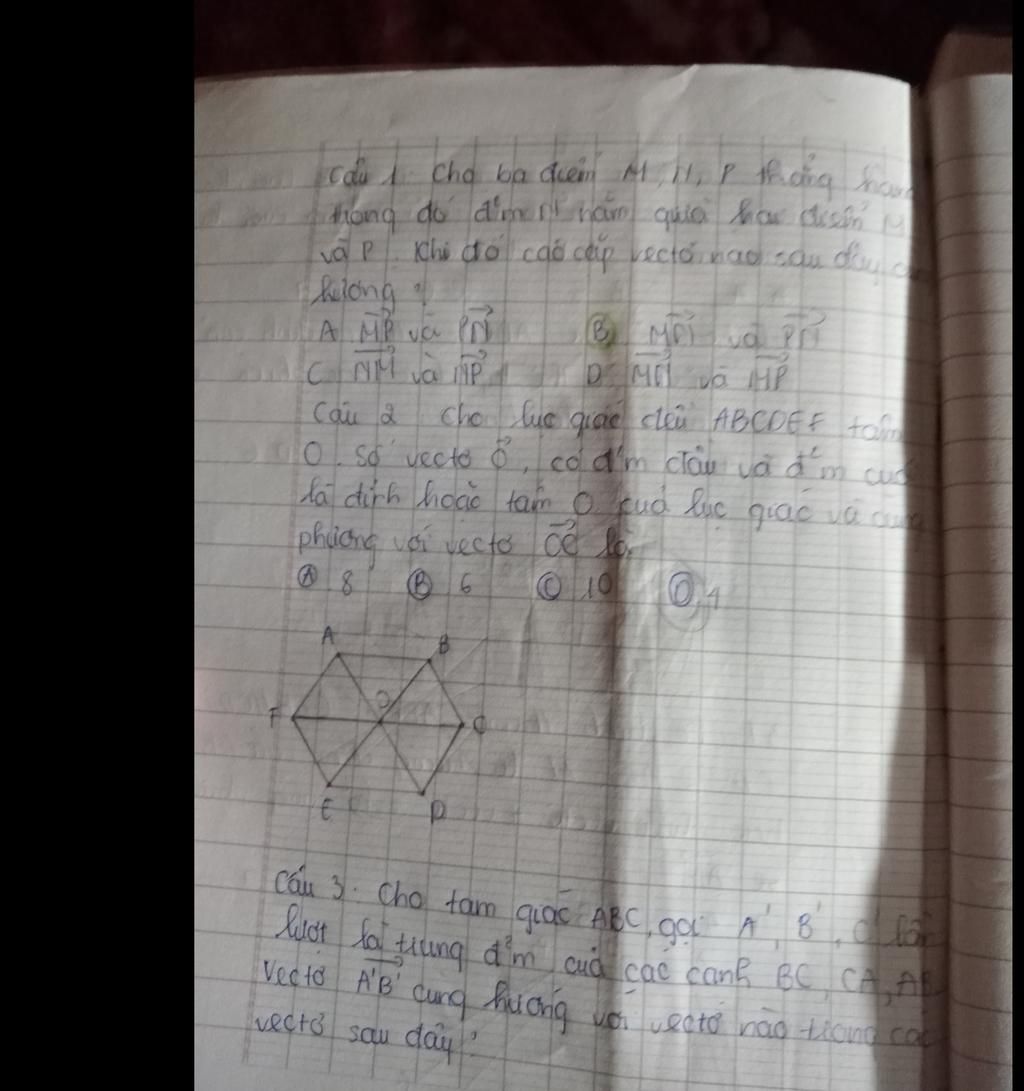 Câu 1. Cho ba điểm M, N, P thẳng hàng
trong đó đ'm N nằm giữa hai điểm M
và P. Khi đó các cặp vectơ nào sau đây
hướng ?
A MP và PN B MN và PN
C NM và NP D MN và MP
Câu 2 Cho lục giác đều ABCDEF tâm
O. Số vectơ ≠ O, có đ'm đầu và đ'm cuối
là đỉnh hoặc tâm O của lục giác và cùng
phương với vectơ OC là:
A 8 B 6 C 10 D 4
A B
F O C
E D
Câu 3. Cho tam giác ABC, gọi A', B', C' lần
lượt là trung đ'm của các cạnh BC, CA, AB
Vectơ A'B' cùng hướng với vectơ nào trong các
vectơ sau đây ?